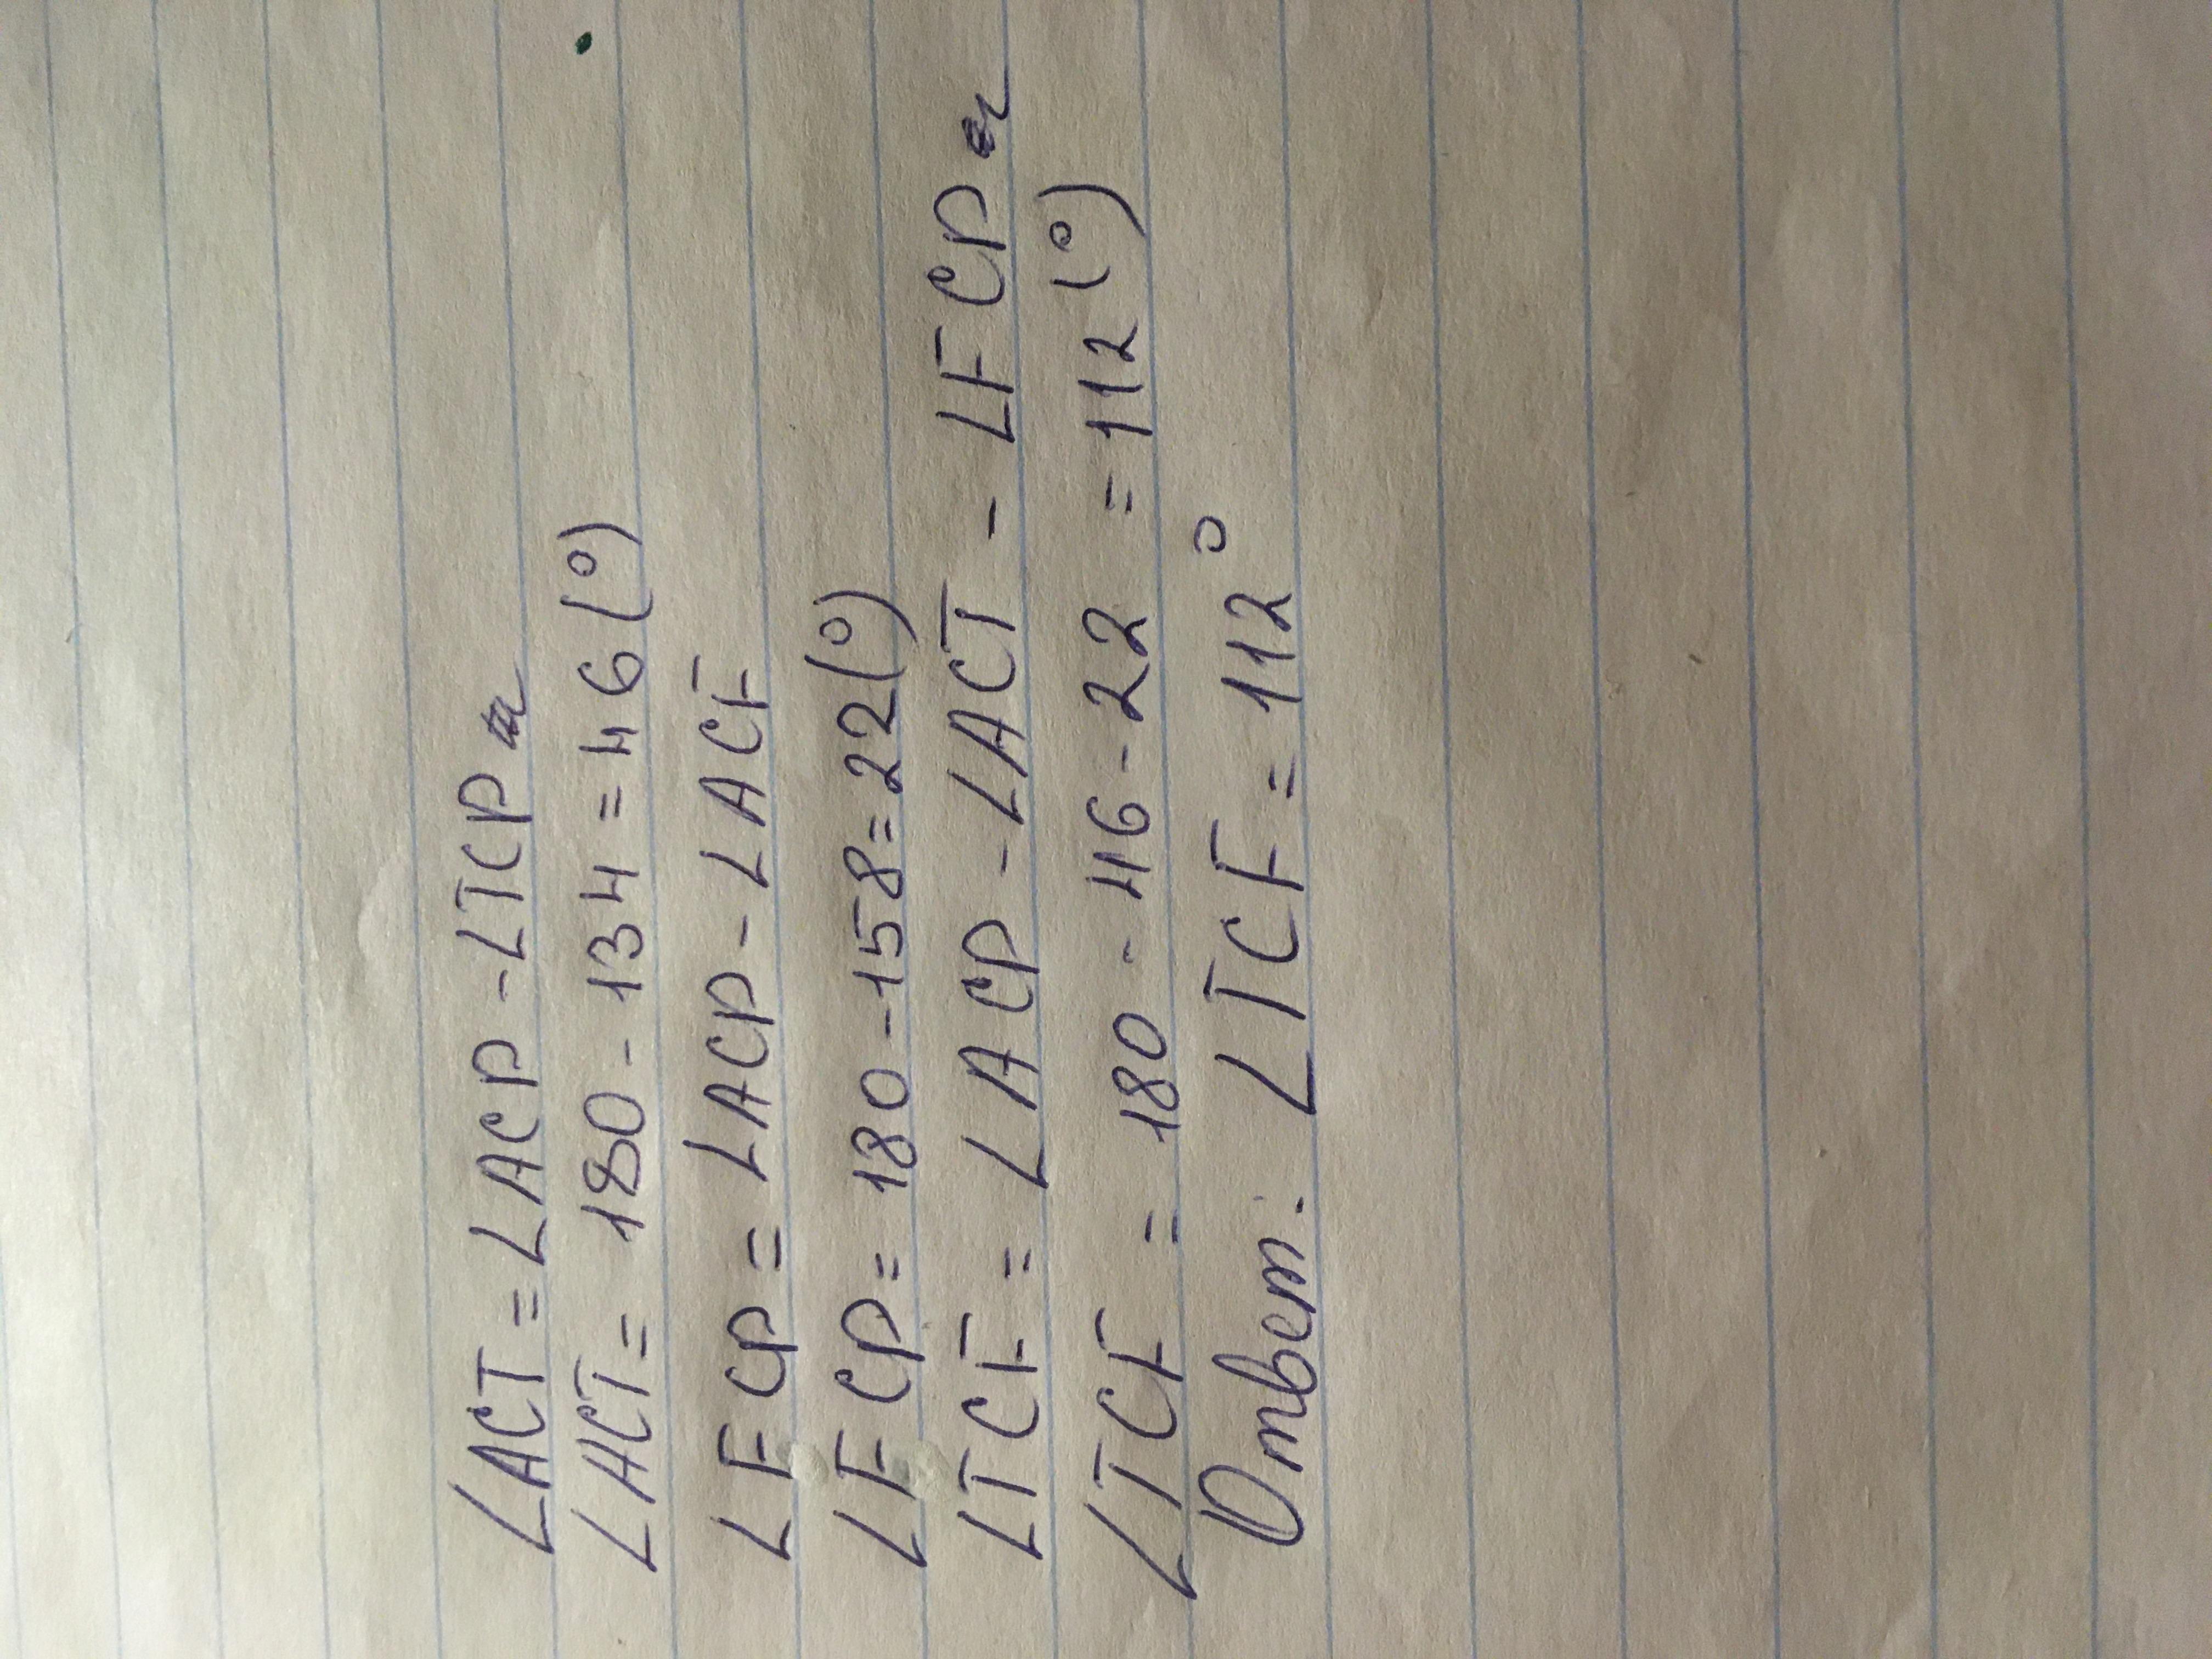 ∠ACT = ∠ACP - ∠TCP
∠ACT = 180 - 134 = 46 (°)
∠FCP = ∠ACP - ∠ACF
∠FCP = 180 - 158 = 22 (°)
∠TCF = ∠ACP - ∠ACT - ∠FCP
∠TCF = 180 - 46 - 22 = 112 (°)
Ответ: ∠TCF = 112°